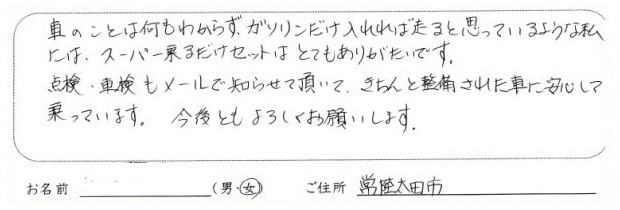 車のことは何もわからず、ガソリンだけ入れれば走ると思っているような私
には、スーパー乗るだけセットはとてもありがたいです。
点検・車検もメールで知らせて頂いて、きちんと整備された車に安心して
乗っています。 今後ともよろしくお願いします。
お名前 (男・女) ご住所 常陸太田市